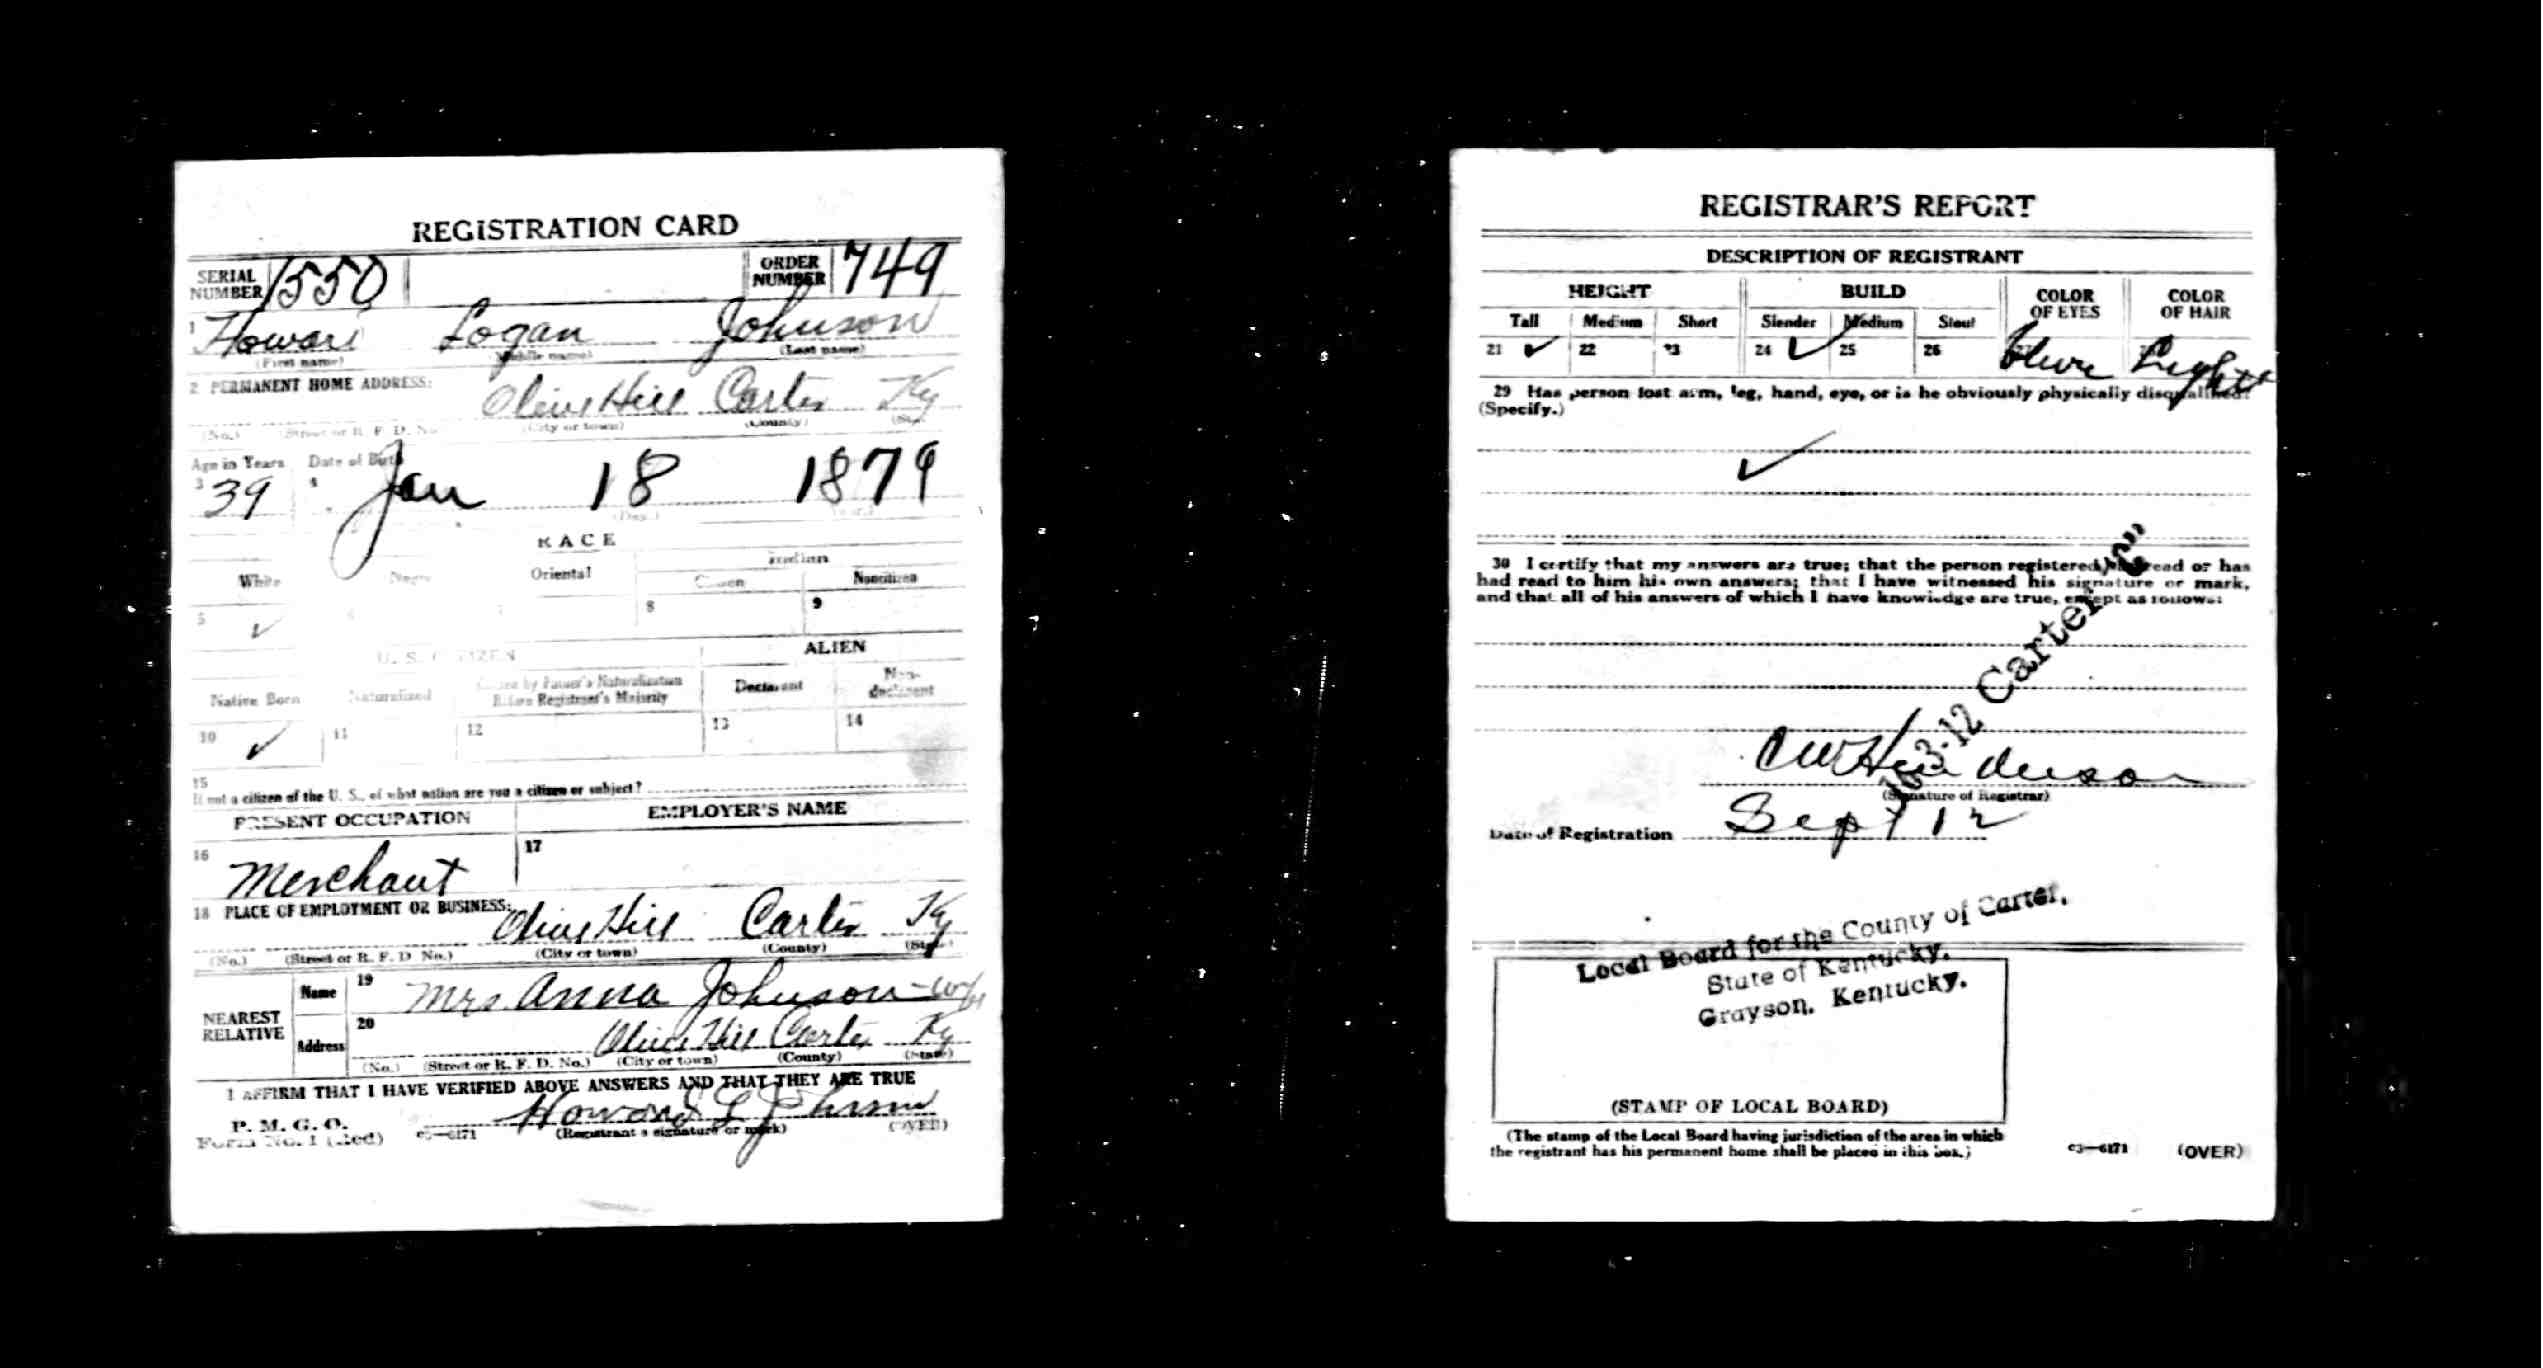 REGISTRATION CARD
SERIAL NUMBER 1550 ORDER NUMBER 749
1 Howard Logan Johnson
(First name) (Middle name) (Last name)
2 PERMANENT HOME ADDRESS:
Olive Hill Carter Ky
(No.) (Street or R. F. D. No.) (City or town) (County) (State)
Age in Years Date of Birth
3 39 4 Jan 18 1879
(Day.) (Year.)
RACE
White Negro Oriental Indian
Citizen Noncitizen
5 ✓ 6 7 8 9
U. S. CITIZEN ALIEN
Native Born Naturalized Citizen by Father's Naturalization Before Registrant's Majority Declarant Non-declarant
10 ✓ 11 12 13 14
15
If not a citizen of the U. S., of what nation are you a citizen or subject?
PRESENT OCCUPATION EMPLOYER'S NAME
16 Merchant 17
18 PLACE OF EMPLOYMENT OR BUSINESS:
Olive Hill Carter Ky
(No.) (Street or R. F. D. No.) (City or town) (County) (State)
NEAREST RELATIVE
Name 19 Mrs. Anna Johnson - wife
Address 20 Olive Hill Carter Ky
(No.) (Street or R. F. D. No.) (City or town) (County) (State)
I AFFIRM THAT I HAVE VERIFIED ABOVE ANSWERS AND THAT THEY ARE TRUE
P. M. G. O.
Form No. 1 (Red) 03—6171 Howard L Johnson
(Registrant's signature or mark) (OVER)
REGISTRAR'S REPORT
DESCRIPTION OF REGISTRANT
HEIGHT BUILD COLOR OF EYES COLOR OF HAIR
Tall Medium Short Slender Medium Stout
21 ✓ 22 23 24 ✓ 25 26 Light
29 Has person lost arm, leg, hand, eye, or is he obviously physically disqualified?
(Specify.)
✓
30 I certify that my answers are true; that the person registered has read or has
had read to him his own answers; that I have witnessed his signature or mark,
and that all of his answers of which I have knowledge are true, except as follows:
16-3-12 Carter "C"
C W Henderson
(Signature of Registrar)
Date of Registration Sept 12
Local Board for the County of Carter,
State of Kentucky,
Grayson, Kentucky.
(STAMP OF LOCAL BOARD)
(The stamp of the Local Board having jurisdiction of the area in which
the registrant has his permanent home shall be placed in this box.)
03—6171 (OVER)